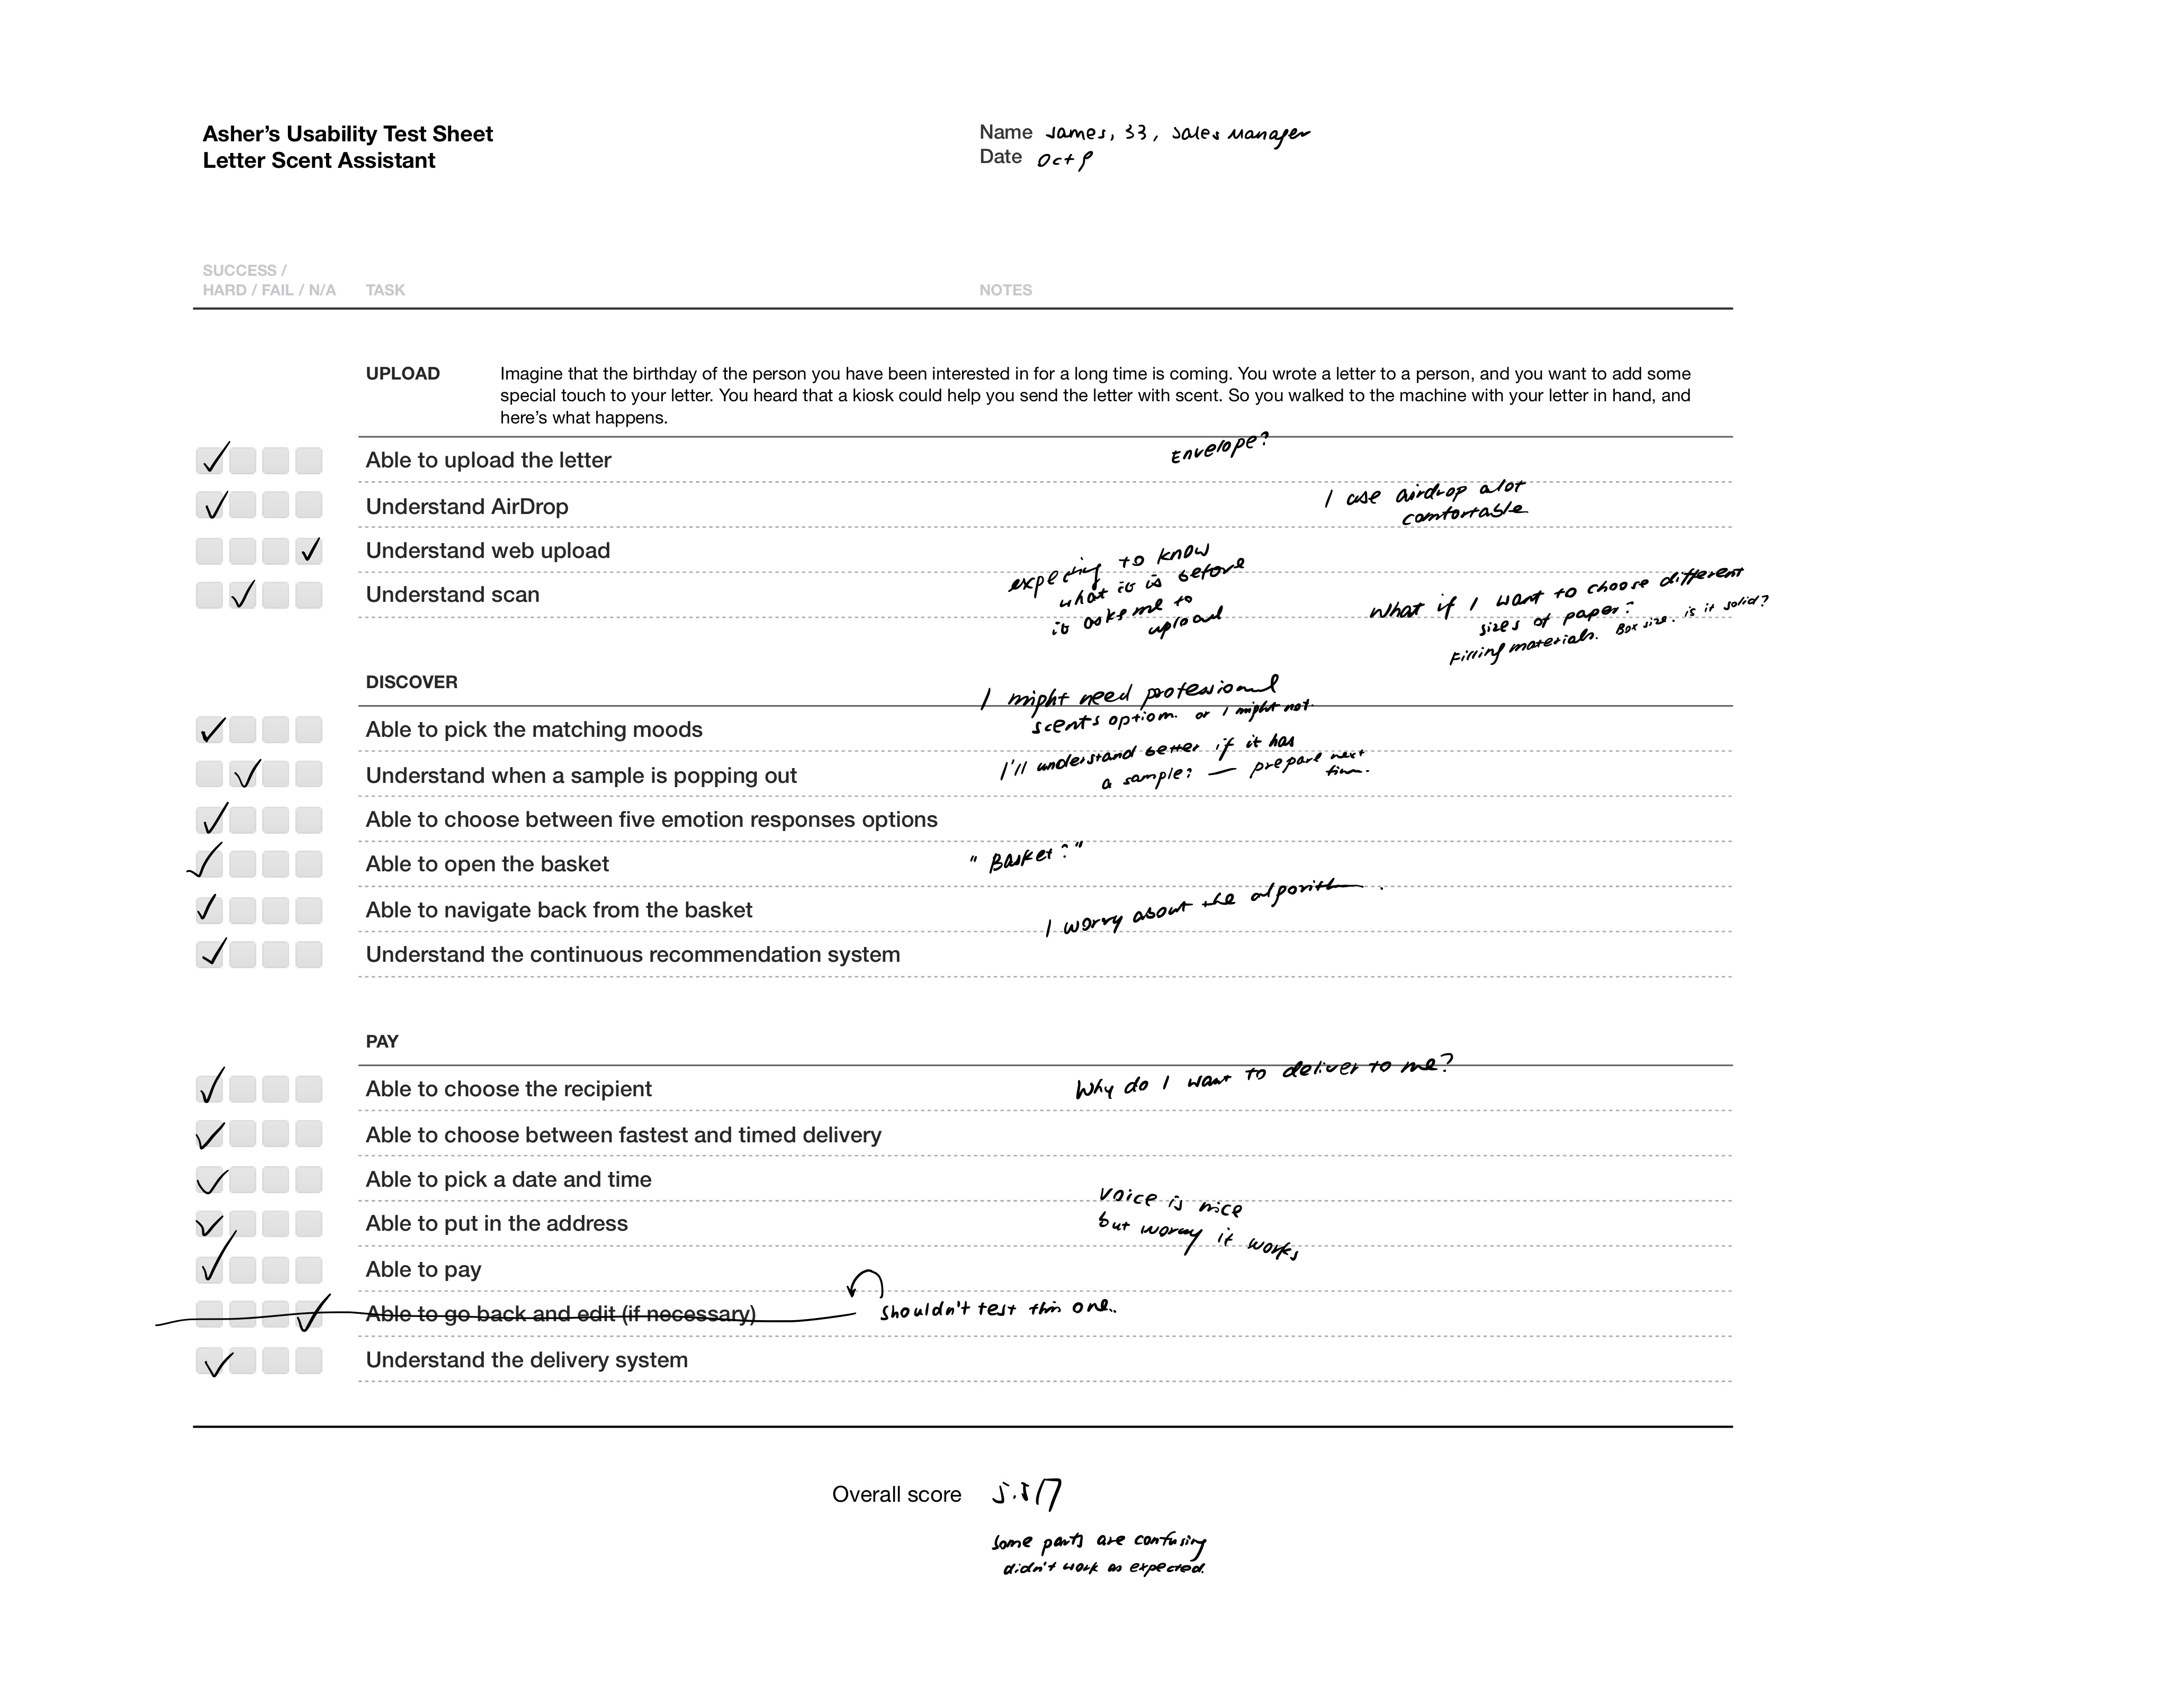 Asher’s Usability Test Sheet
Letter Scent Assistant
Name James, 33, Sales Manager
Date Oct 9
SUCCESS /
HARD / FAIL / N/A TASK NOTES
UPLOAD Imagine that the birthday of the person you have been interested in for a long time is coming. You wrote a letter to a person, and you want to add some
special touch to your letter. You heard that a kiosk could help you send the letter with scent. So you walked to the machine with your letter in hand, and
here’s what happens.
Able to upload the letter
Envelope?
Understand AirDrop
I use airdrop alot
comfortable
Understand web upload
Understand scan
expecting to know
what it is before
it asks me to
upload
What if I want to choose different
sizes of paper?
Filling materials. Box size. is it solid?
DISCOVER
I might need professional
scents option. or I might not.
Able to pick the matching moods
Understand when a sample is popping out
I'll understand better if it has
a sample? — prepare next
time.
Able to choose between five emotion responses options
Able to open the basket
"Basket?"
Able to navigate back from the basket
I worry about the algorithm.
Understand the continuous recommendation system
PAY
Able to choose the recipient
Why do I want to deliver to me?
Able to choose between fastest and timed delivery
Able to pick a date and time
Able to put in the address
Voice is nice
but worry it works
Able to pay
Able to go back and edit (if necessary)
shouldn't test this one..
Understand the delivery system
Overall score 5.5/7
Some parts are confusing
didn't work as expected.